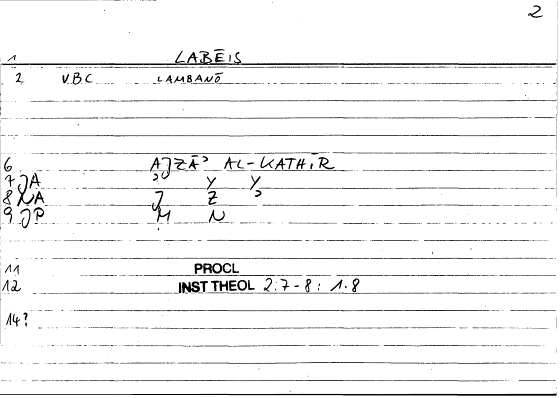 2
1 LABĒIS
2 VBC LAMBANŌ
6 AJZĀʾ AL-KATHĪR
7 JA ʾ Y Y
8 NA J Z ʾ
9 JP M N
11 PROCL
12 INST THEOL 2.7-8 : 1.8
14?